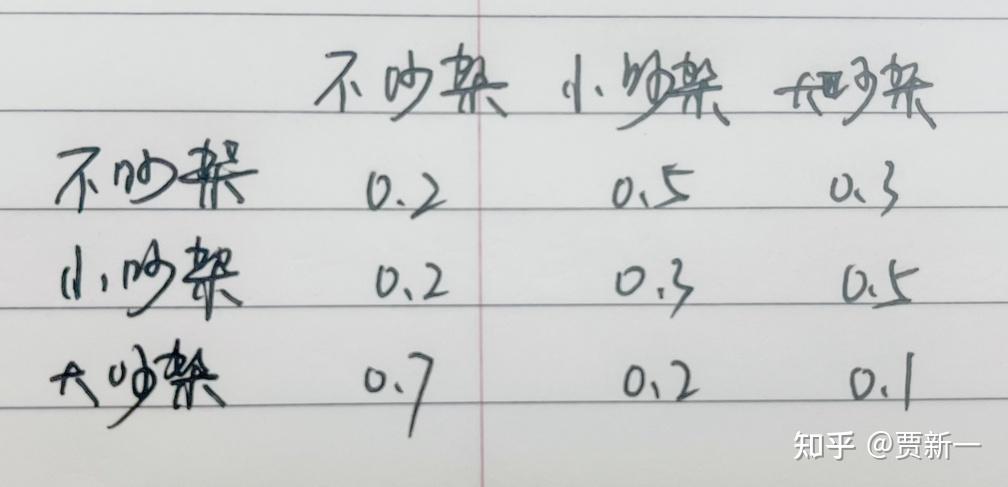 不吵架 小吵架 大吵架
不吵架 0.2 0.5 0.3
小吵架 0.2 0.3 0.5
大吵架 0.7 0.2 0.1
知乎 @贾新一